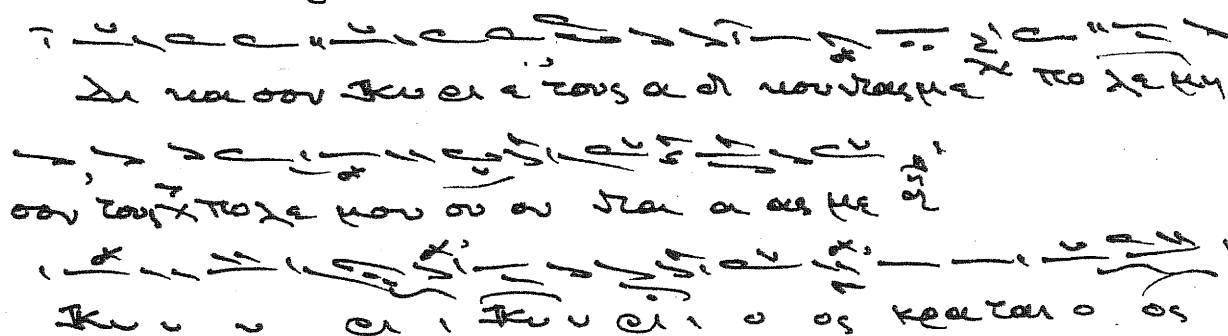 Δι κα σον Κυ ρι ε τους α δι κουντας με πο λε μη
σον τους πο λε μου ου ου νται α ας με
Κυ υ υ ρι ι Κυ υ ρι ι ο ος κρα ται ο ος